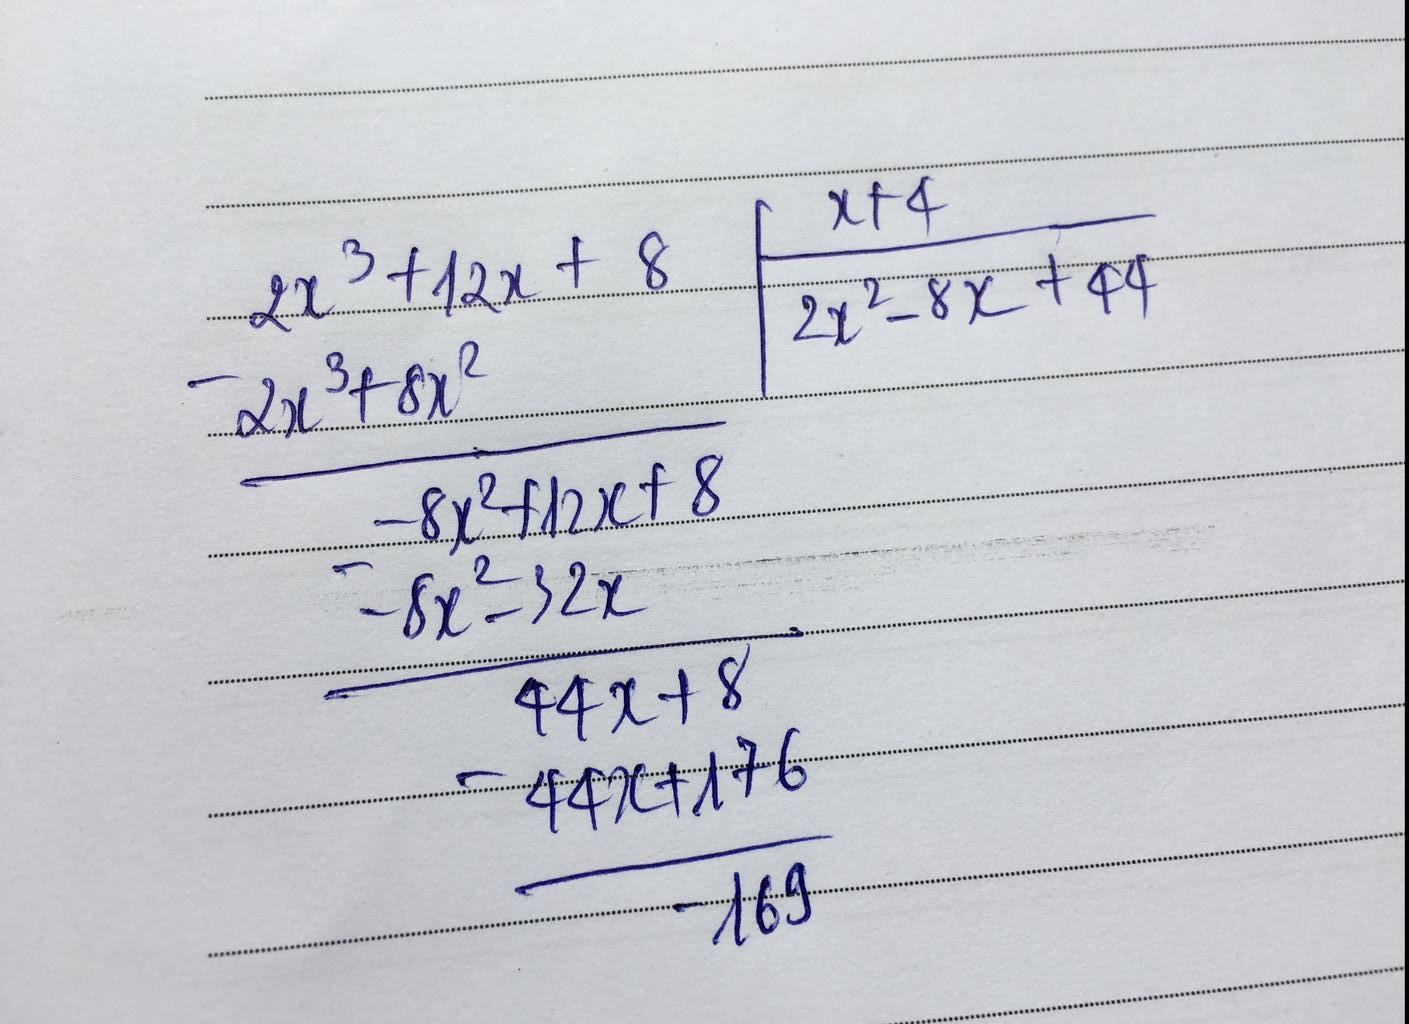 2x³+12x + 8 | x+4
2x²-8x + 44
- 2x³+8x²
-8x²+12x+8
- -8x²-32x
44x+8
- 44x+176
-169